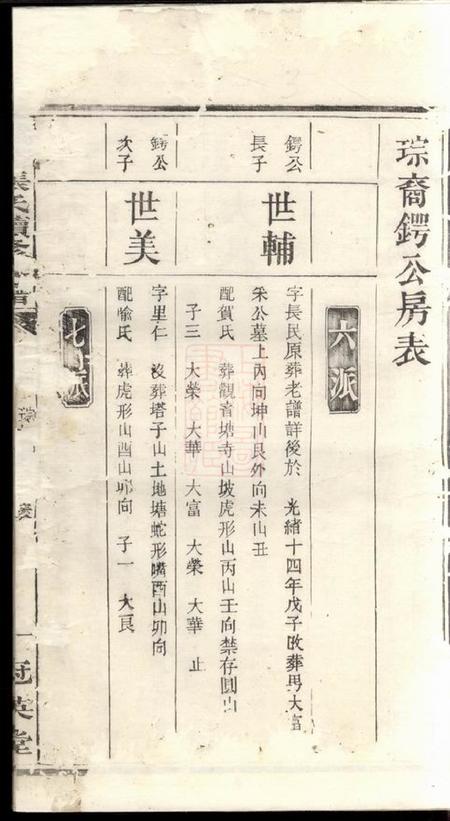 琮裔鍔公房表
六派
鍔公長子
世輔
字長民原葬老譜詳後於 光緒十四年戊子改葬男大富
釆公墓上內向坤山艮外向未山丑
配賀氏 葬觀音塘寺山坡虎形山丙山壬向禁存圓山
子三 大榮 大華 大富 大榮 大華 止
鍔公次子
世美
字里仁 沒葬塔子山土地塘蛇形嘴酉山卯向
配喻氏 葬虎形山酉山卯向 子一 大良
七派
張氏續修
一
冠英堂